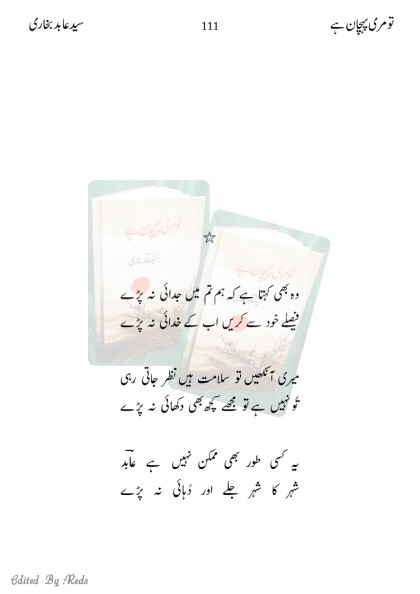 تو مری پہچان ہے 111 سید عابد بخاری
تو مری پہچان ہے
تو مری پہچان ہے
☆
وہ بھی کہتا ہے کہ ہم تم میں جدائی نہ پڑے
فیصلے خود سے کریں اب کے خدائی نہ پڑے
میری آنکھیں تو سلامت ہیں نظر جاتی رہی
تُو نہیں ہے تو مجھے کچھ بھی دکھائی نہ پڑے
یہ کسی طور بھی ممکن نہیں ہے عابدؔ
شہر کا شہر جلے اور دُہائی نہ پڑے
Edited By Reds